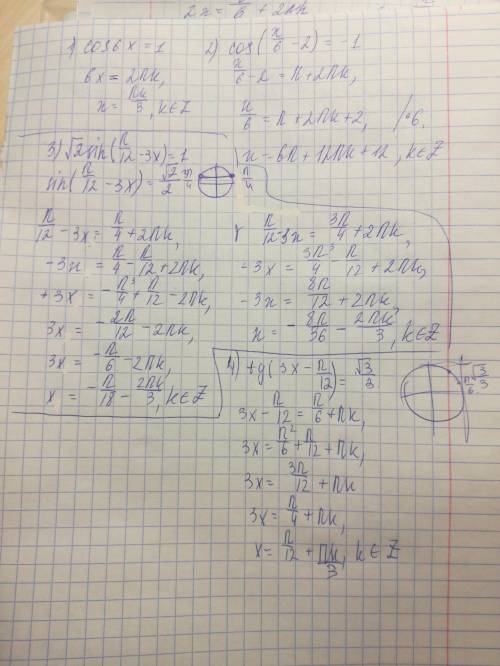 2x = π/6 + 2πk
1) cos6x = 1
6x = 2πk,
x = πk/3, k∈Z
2) cos(x/6 - 2) = -1
x/6 - 2 = π + 2πk,
x/6 = π + 2πk + 2, /·6.
x = 6π + 12πk + 12, k∈Z
3) √2 sin(π/12 - 3x) = 1
sin(π/12 - 3x) = √2/2
3π/4
π/4
π/12 - 3x = π/4 + 2πk,
-3x = π/4 - π/12 + 2πk,
+3x = -π/4 + π/12 - 2πk,
3x = -2π/12 - 2πk,
3x = -π/6 - 2πk,
x = -π/18 - 2πk/3, k∈Z
π/12 - 3x = 3π/4 + 2πk,
-3x = 3π/4 - π/12 + 2πk,
-3x = 8π/12 + 2πk,
x = -8π/36 - 2πk/3, k∈Z
4) tg(3x - π/12) = √3/3
3x - π/12 = π/6 + πk,
3x = π/6 + π/12 + πk,
3x = 3π/12 + πk
3x = π/4 + πk,
x = π/12 + πk/3, k∈Z
1
√3/3
π/6